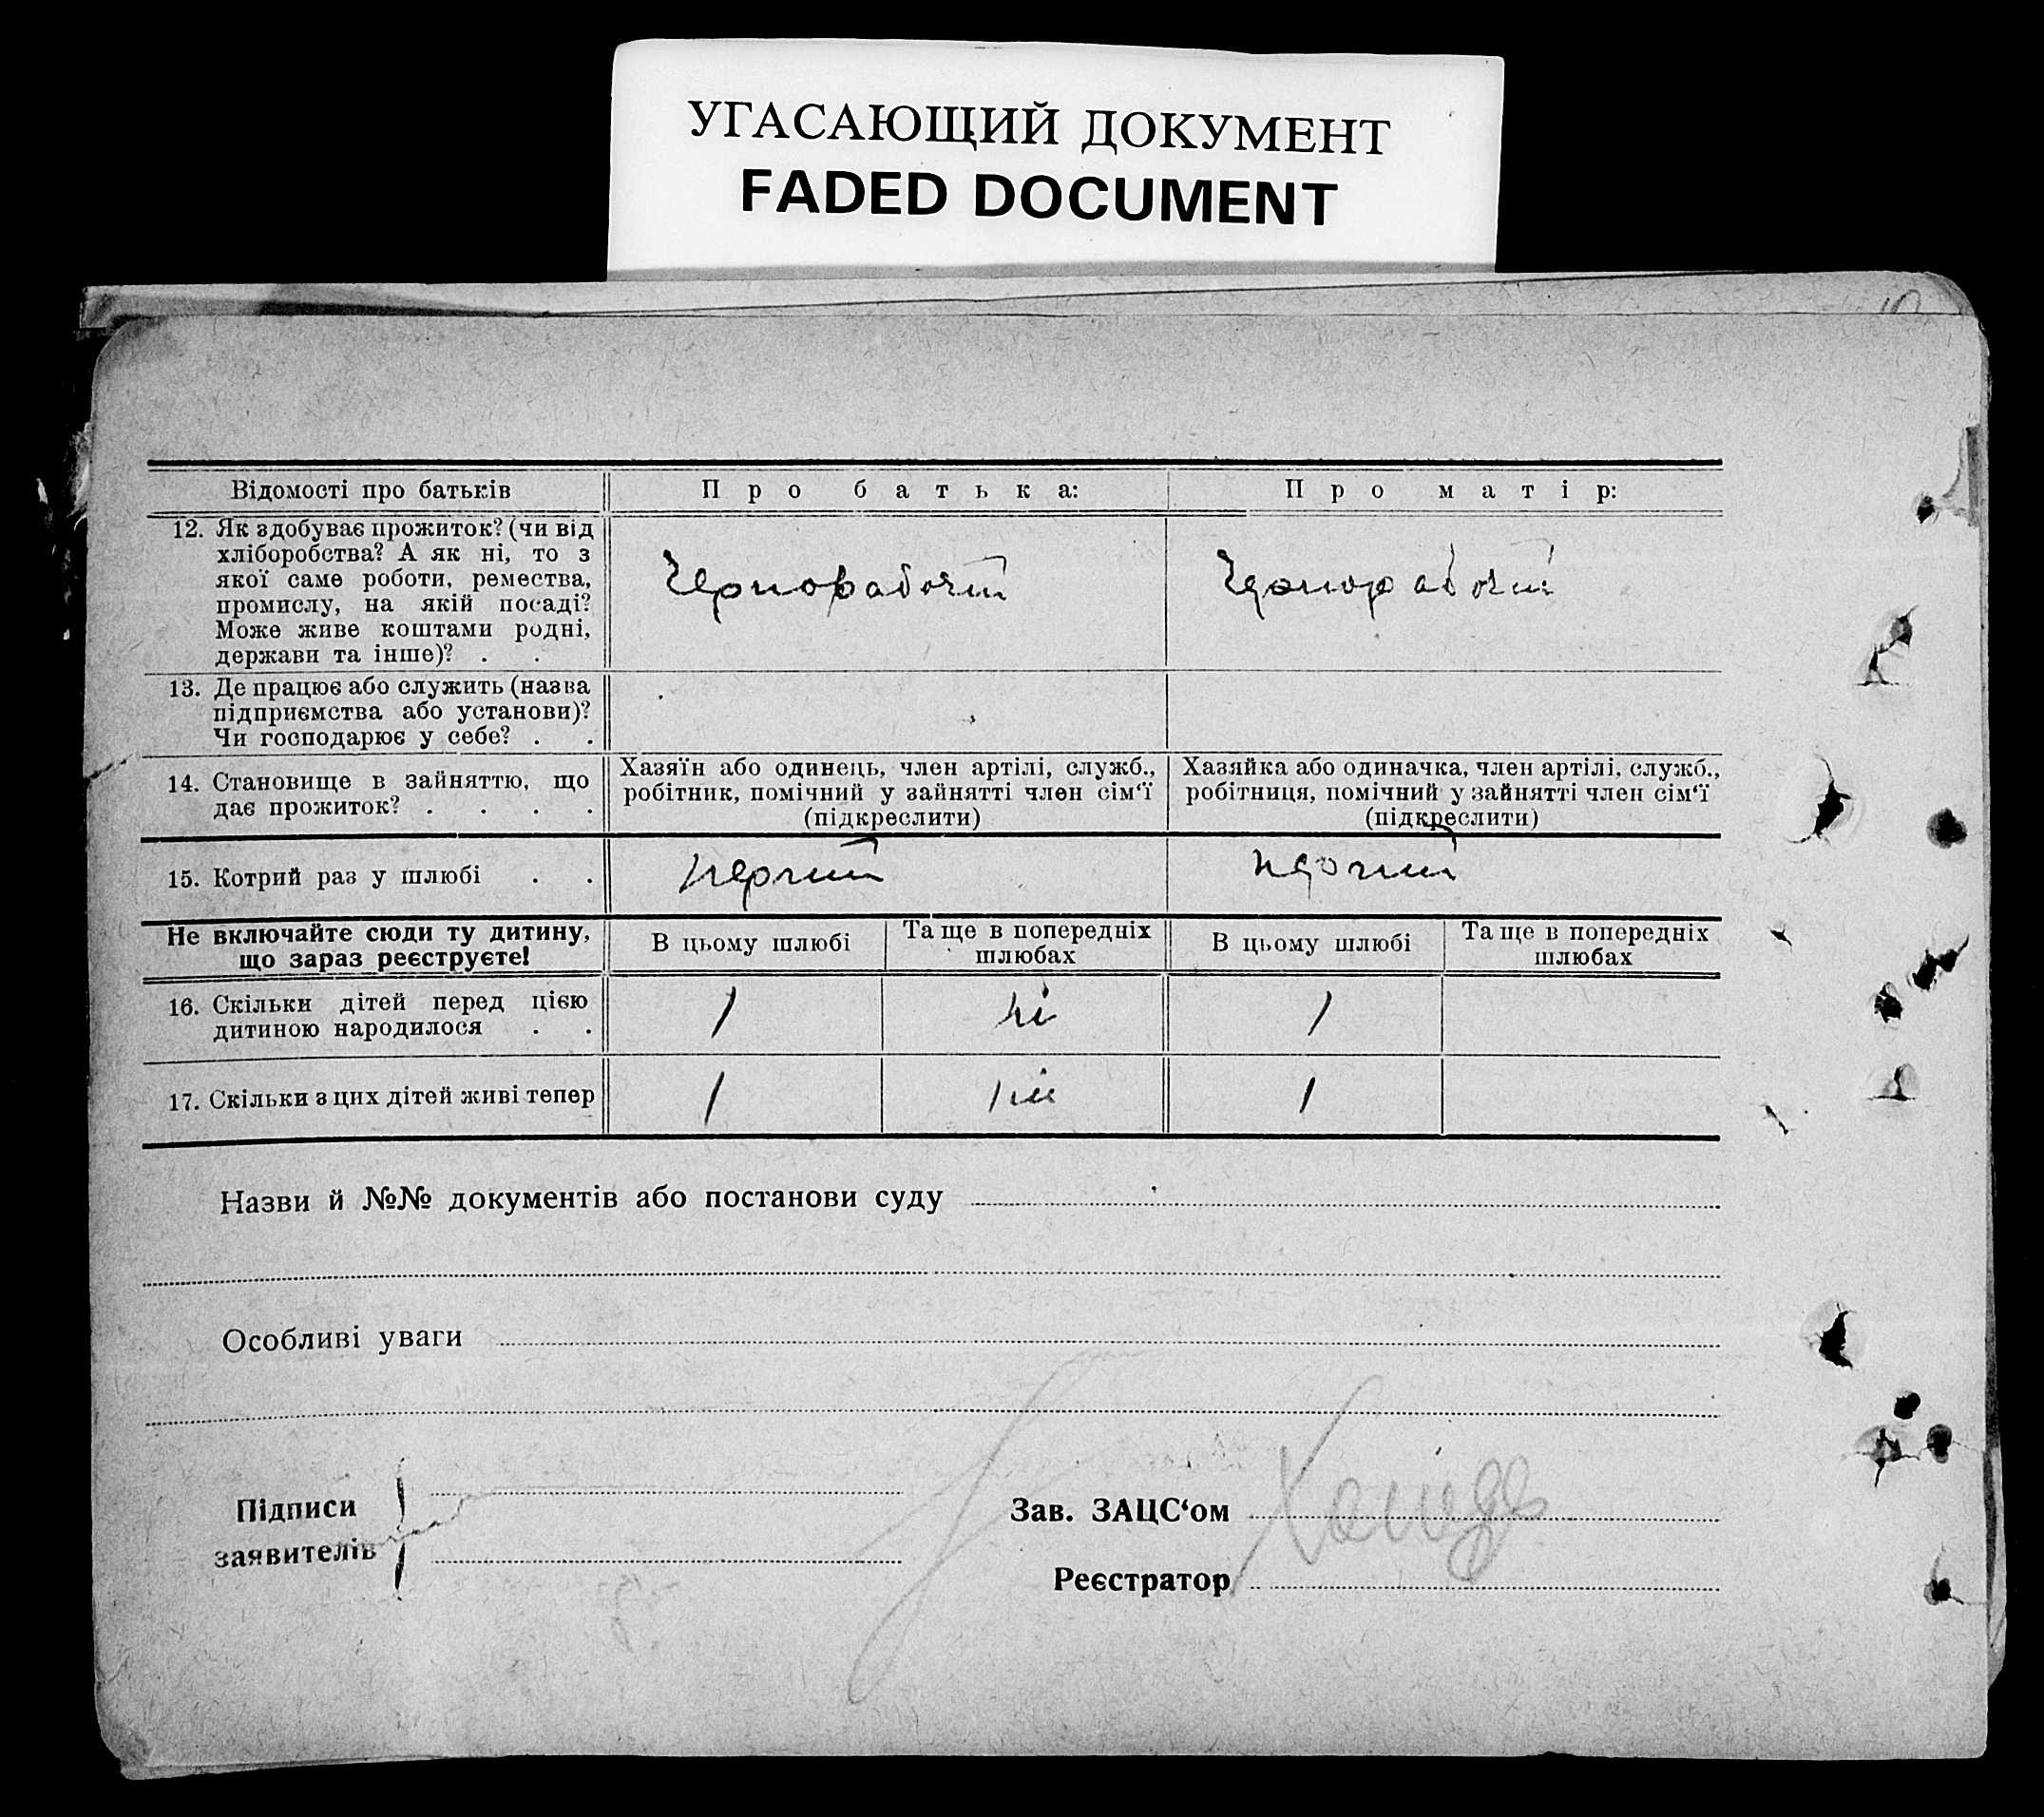 УГАСАЮЩИЙ ДОКУМЕНТ
FADED DOCUMENT
Відомості про батьків
Про батька:
Про матір:
12. Як здобуває прожиток? (чи від
хліборобства? А як ні, то з
якої саме роботи, ремества,
промислу, на якій посаді?
Може живе коштами родні,
держави та інше)? . .
Чернорабочий
Чернорабочий
13. Де працює або служить (назва
підприємства або установи)?
Чи господарює у себе? . .
14. Становище в зайняттю, що
дає прожиток? . . . .
Хазяїн або одинець, член артілі, служб.,
робітник, помічний у зайнятті член сім‘ї
(підкреслити)
Хазяйка або одиначка, член артілі, служб.,
робітниця, помічний у зайнятті член сім‘ї
(підкреслити)
15. Котрий раз у шлюбі . .
перший
перший
Не включайте сюди ту дитину,
що зараз реєструєте!
В цьому шлюбі
Та ще в попередніх
шлюбах
В цьому шлюбі
Та ще в попередніх
шлюбах
16. Скільки дітей перед цією
дитиною народилося . .
1
ні
1
17. Скільки з цих дітей живі тепер
1
ні
1
Назви й №№ документів або постанови суду
Особливі уваги
Підписи
заявителів
Зав. ЗАЦС‘ом
Реєстратор